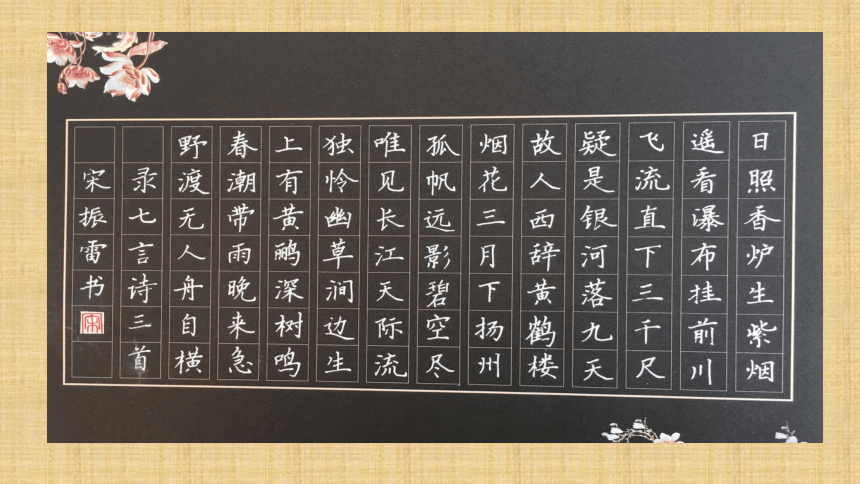 日照香炉生紫烟
遥看瀑布挂前川
飞流直下三千尺
疑是银河落九天
故人西辞黄鹤楼
烟花三月下扬州
孤帆远影碧空尽
唯见长江天际流
独怜幽草涧边生
上有黄鹂深树鸣
春潮带雨晚来急
野渡无人舟自横
录七言诗三首
宋振雷书
宋